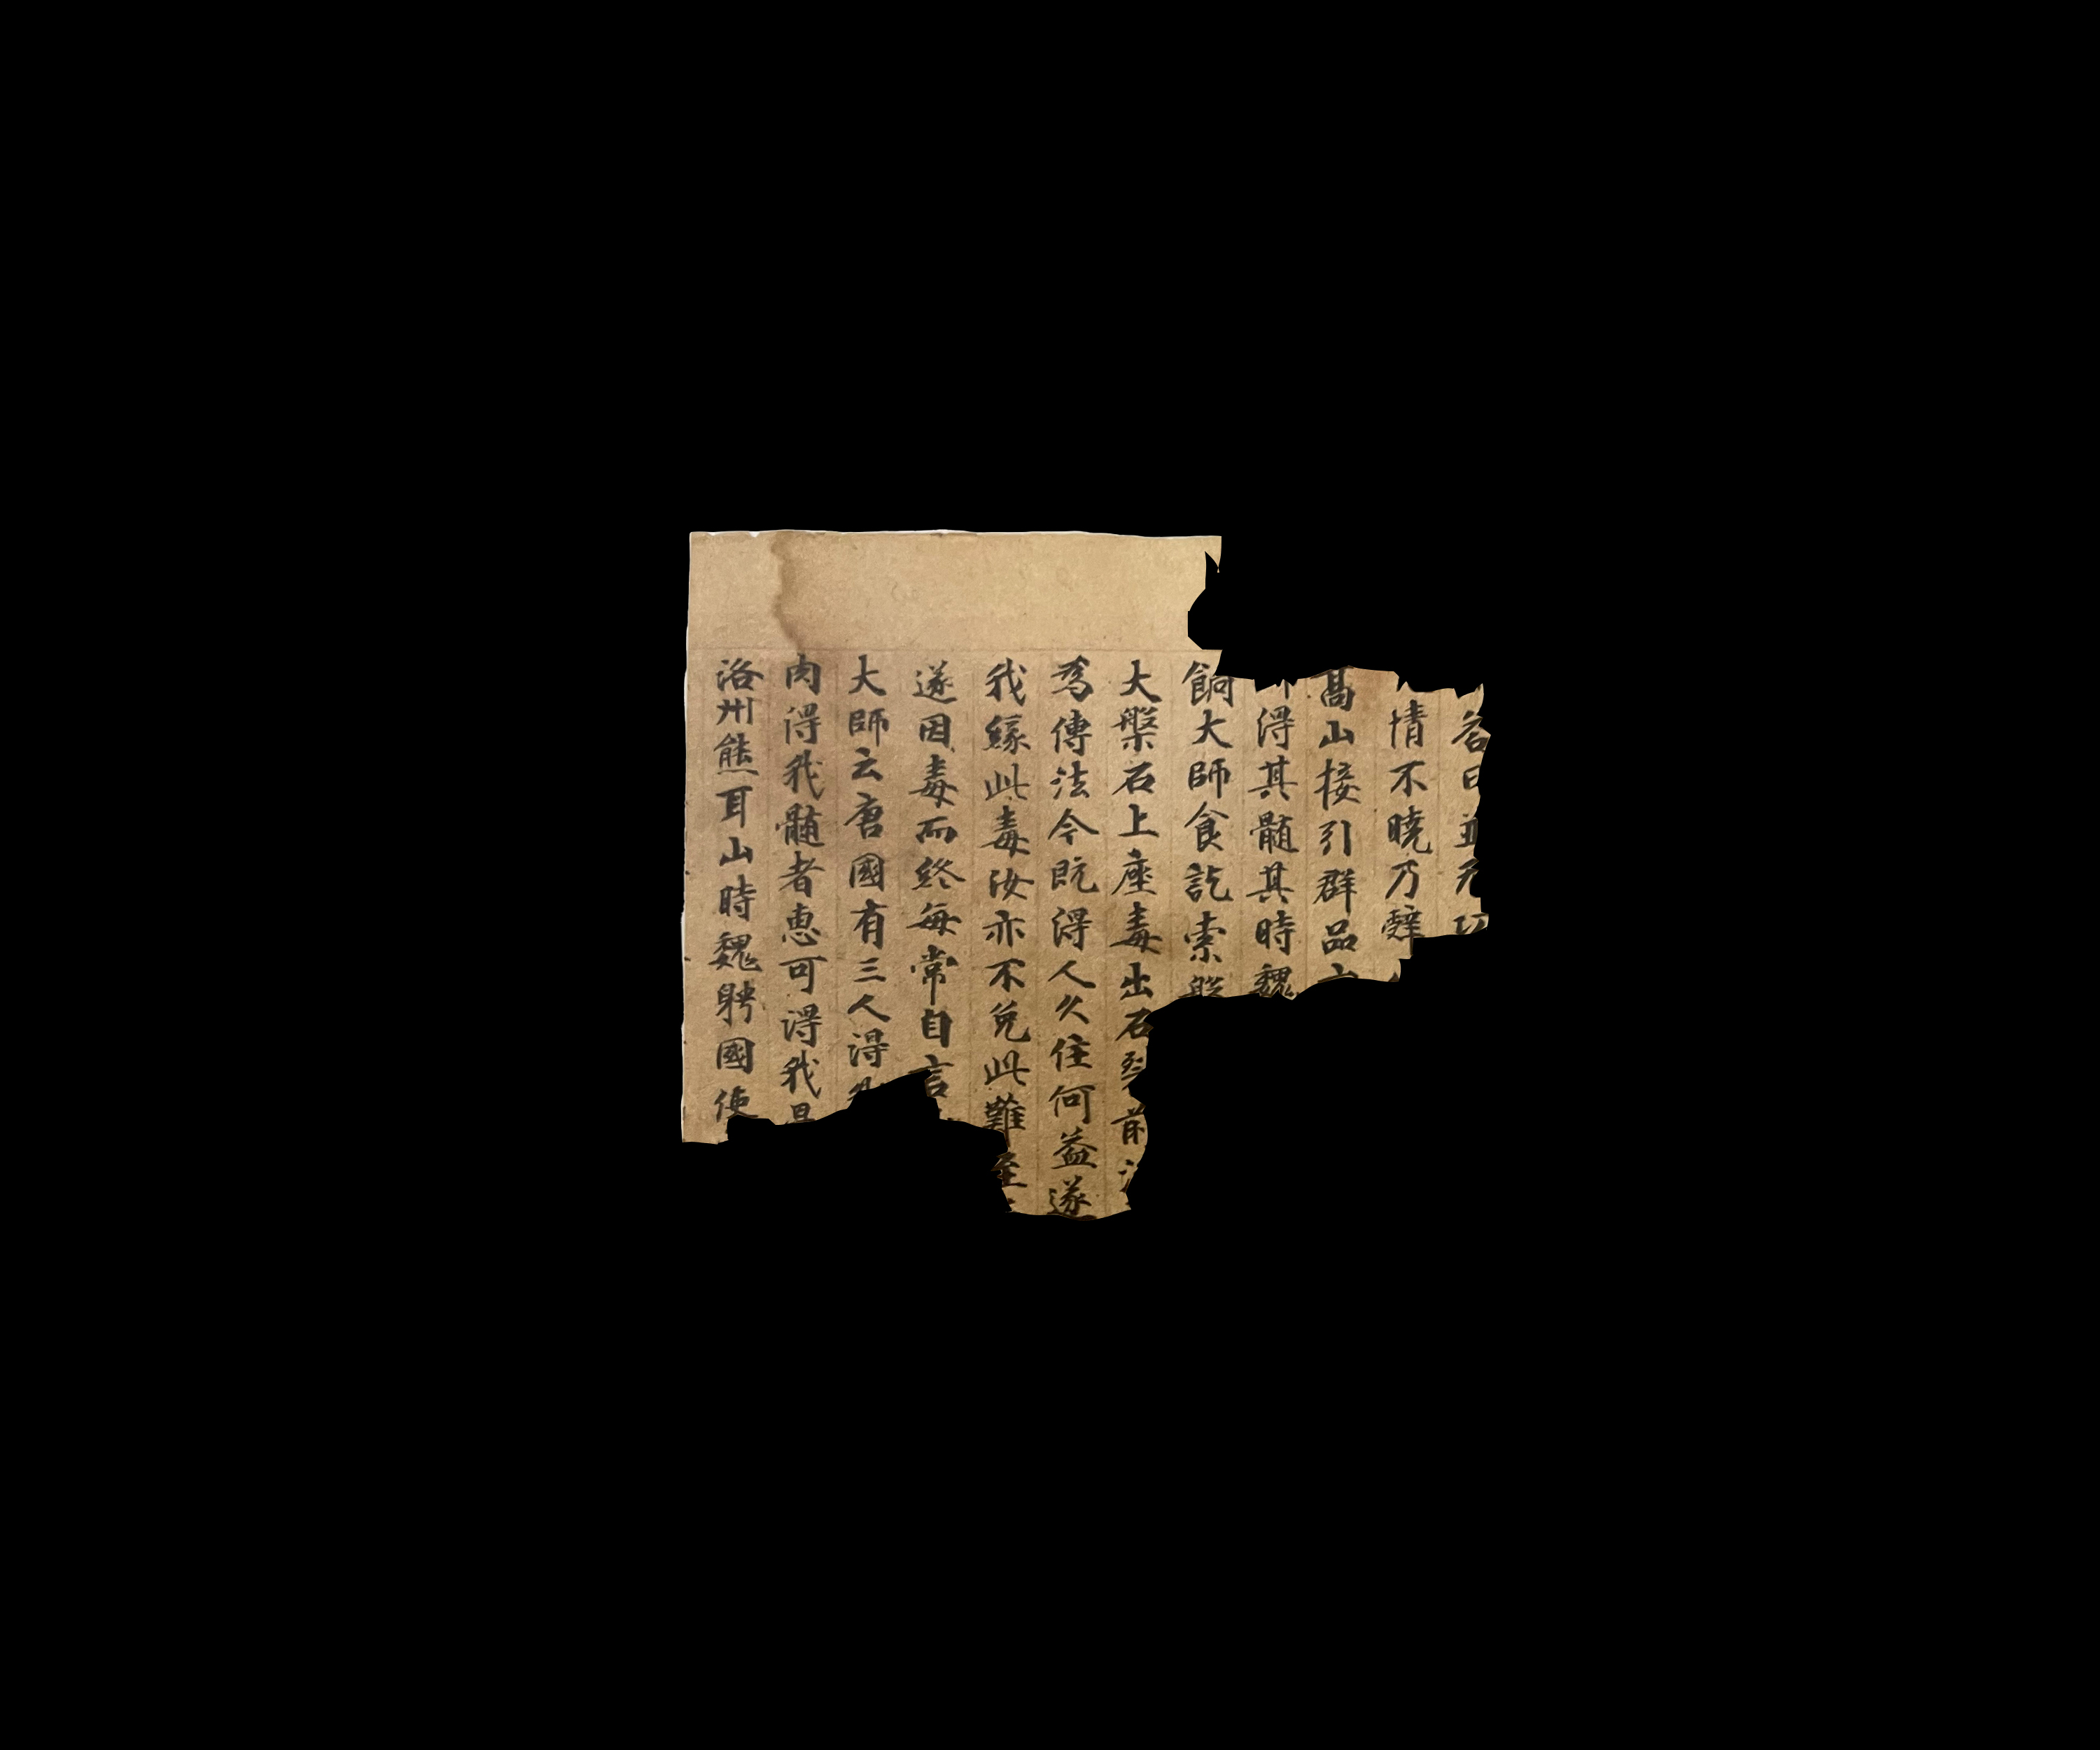 答曰並无功
情不曉乃辤
嵩山接引群品
得其髓其時魏
餉大師食訖索盤
大槃石上座毒出石裂前
為傳法今既得人久住何益遂
我緣此毒汝亦不免此難至
遂因毒而終每常自言
大師云唐國有三人得我
肉得我髓者惠可得我
洛州熊耳山時魏聘國使